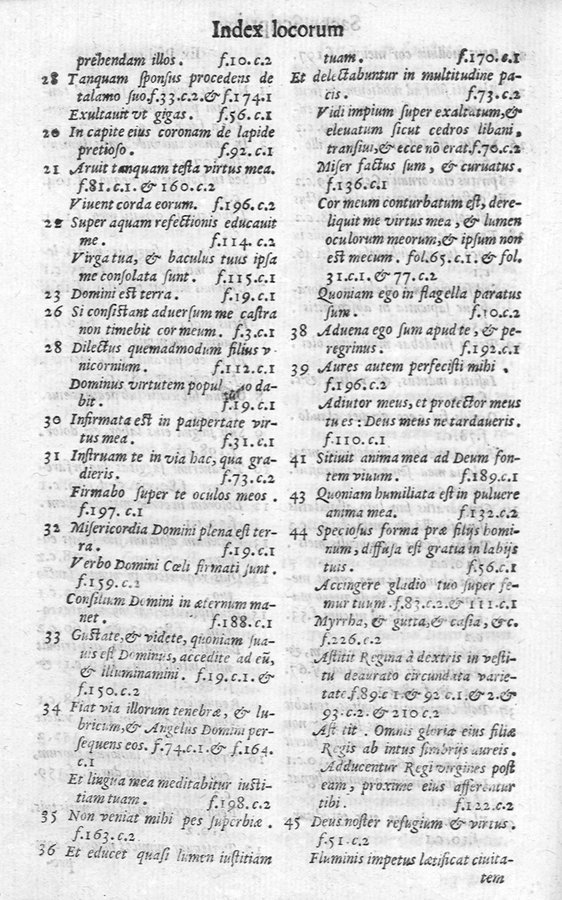 Index locorum
prehendam illos. f.10.c.2
28 Tanquam sponsus procedens de
talamo suo.f.33.c.2.& f.174.1
Exultauit vt gigas. f.56.c.1
20 In capite eius coronam de lapide
pretioso. f.92.c.1
21 Aruit tanquam testa virtus mea.
f.81.c.1. & 160.c.2
Viuent corda eorum. f.196.c.2
22 Super aquam refectionis educauit
me. f.114.c.2
Virga tua, & baculus tuus ipsa
me consolata sunt. f.115.c.1
23 Domini est terra. f.19.c.1
26 Si consistant aduersum me castra
non timebit cor meum. f.3.c.1
28 Dilectus quemadmodum filius v
nicornium. f.112.c.1
Dominus virtutem popul o da-
bit. f.19.c.1
30 Infirmata est in paupertate vir-
tus mea. f.31.c.1
31 Instruam te in via hac, qua gra-
dieris. f.73.c.2
Firmabo super te oculos meos.
f.197.c.1
32 Misericordia Domini plena est ter-
ra. f.19.c.1
Verbo Domini Cœli firmati sunt.
f.159.c.2
Consilium Domini in æternum ma-
net. f.188.c.1
33 Gustate,& videte, quoniam sua-
uis est Dominus, accedite ad eũ,
& illuminamini. f.19.c.1.&
f.150.c.2
34 Fiat via illorum tenebræ, & lu-
bricum,& Angelus Domini per-
sequens eos. f.74.c.1.& f.164.
c.1
Et lingua mea meditabitur iusti-
tiam tuam. f.198.c.2
35 Non veniat mihi pes superbiæ.
f.163.c.2
36 Et educet quasi lumen iustitiam
tuam. f.170.c.1
Et delectabuntur in multitudine pa-
cis. f.73.c.2
Vidi impium super exaltatum,&
eleuatum sicut cedros libani,
transiui,& ecce nō erat.f.70.c.2
Miser factus sum, & curuatus.
f.136.c.1
Cor meum conturbatum est, dere-
liquit me virtus mea, & lumen
oculorum meorum,& ipsum non
est mecum. fol.65.c.1.& fol.
31.c.1. & 77.c.2
Quoniam ego in flagella paratus
sum. f.10.c.2
38 Aduena ego sum apud te, & pe-
regrinus. f.192.c.1
39 Aures autem perfecisti mihi.
f.196.c.2
Adiutor meus, et protector meus
tu es: Deus meus ne tardaueris.
f.110.c.1
41 Sitiuit anima mea ad Deum fon-
tem viuum. f.189.c.1
43 Quoniam humiliata est in puluere
anima mea. f.132.c.2
44 Speciosus forma præ filijs homi-
num, diffusa est gratia in labijs
tuis. f.56.c.1
Accingere gladio tuo super fe-
mur tuum. f.83.c.2.& 111.c.1
Myrrha, & gutta,& casia, &c.
f.226.c.2
Astitit Regina à dextris in vesti-
tu deaurato circundata varie-
tate.f.89.c 1.& 92 c.1.& 2.&
93.c.2.& 210 c.2
Asti tit. Omnis gloria eius filiæ
Regis ab intus fimbrijs aureis.
Adducentur Regi virgines post
eam, proxime eius afferentur
tibi. f.122.c.2
45 Deus noster refugium & virtus.
f.51.c.2
Fluminis impetus lætificat ciuita-
tem